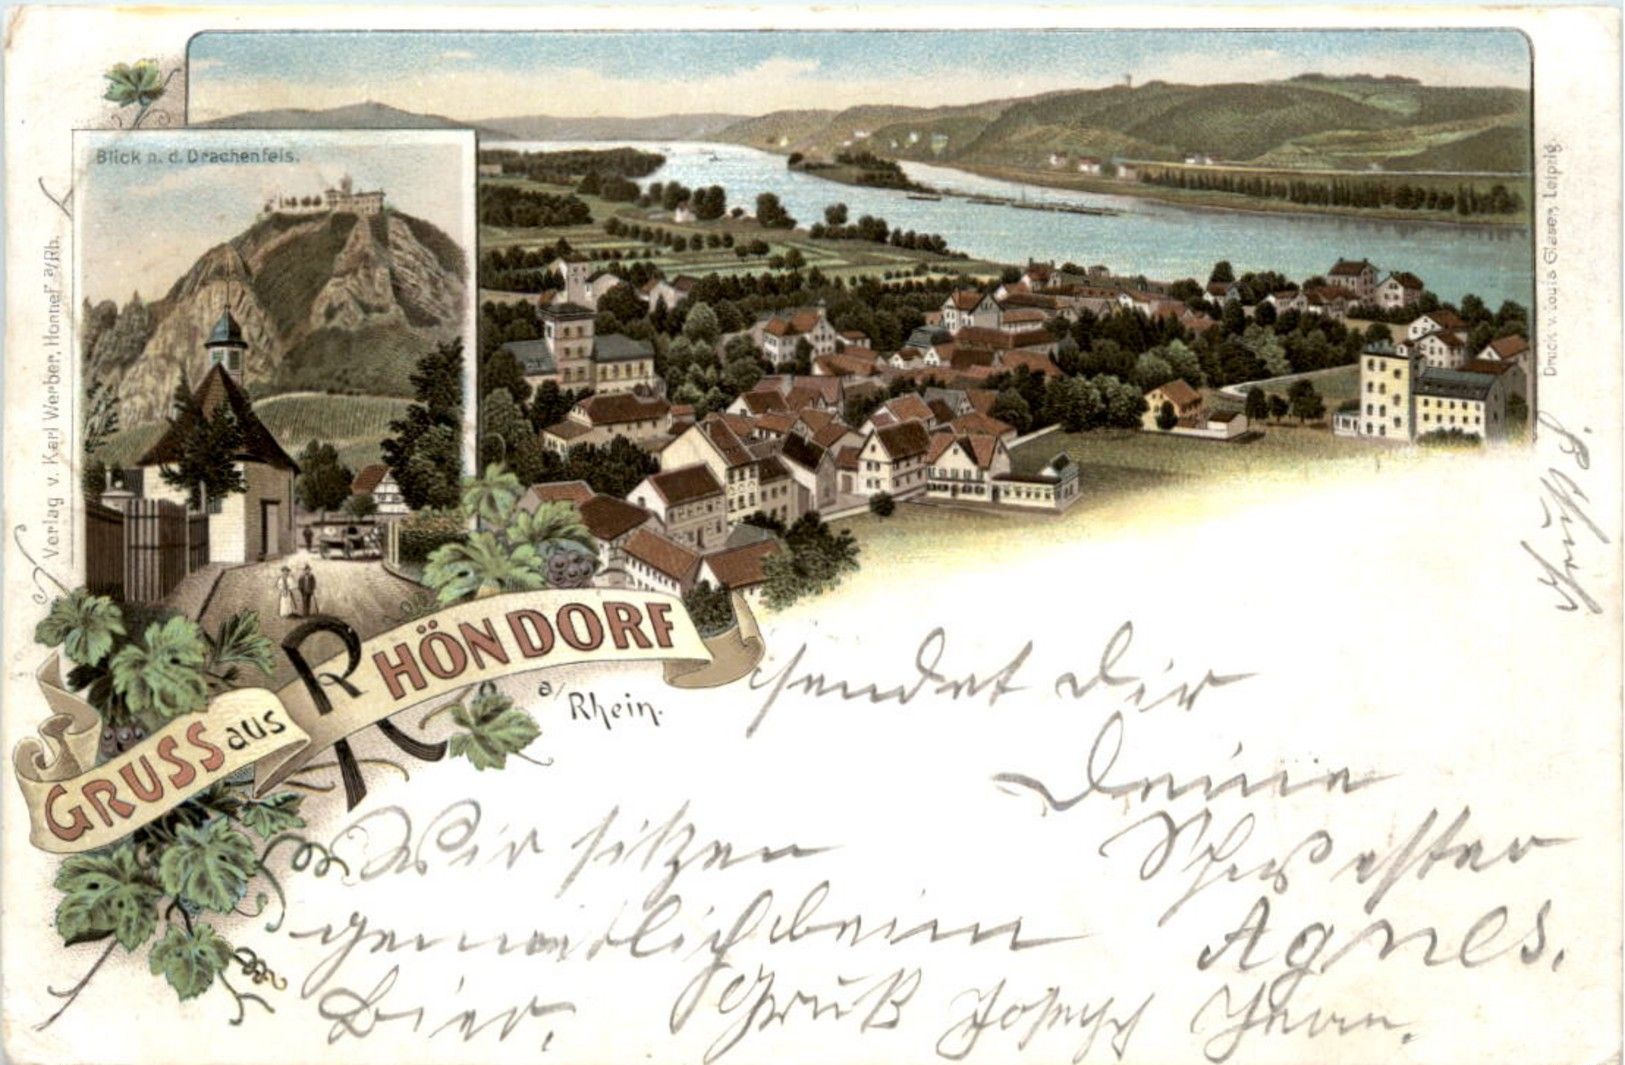 Blick n. d. Drachenfels.
Verlag v. Karl Werber, Honnef a/Rh.
Druck v. Louis Glaser, Leipzig.
GRUSS aus RHÖNDORF
a/Rhein.
sendet dir
Deine
Schwester
Agnes.
Wir sitzen
gemütlich beim
Bier.
Gruß Joseph